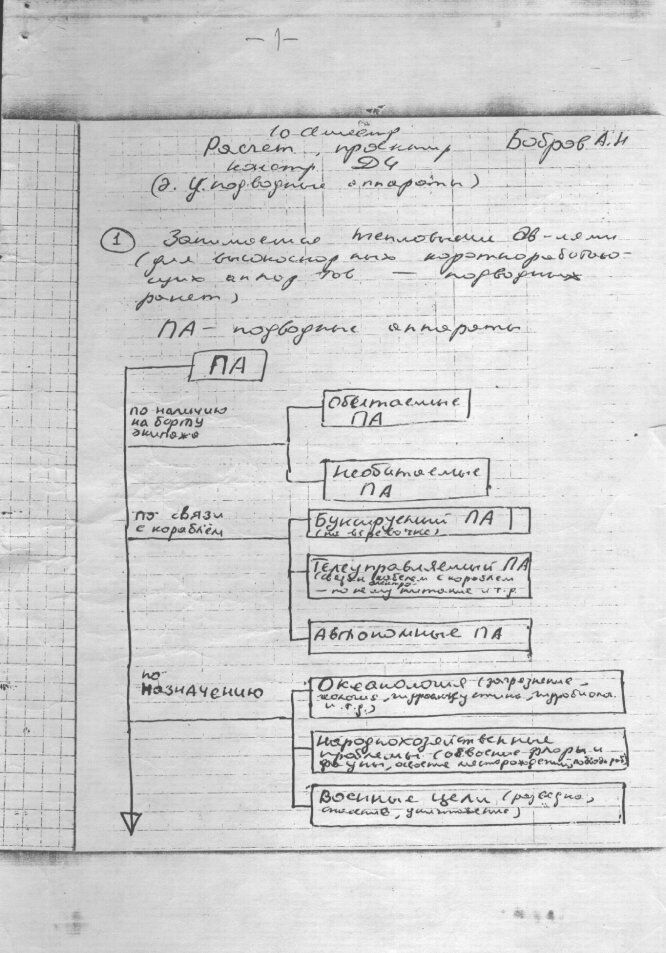 -1-
10 семестр
Расчет, проектир
констр ДУ
(Э. У. подводные аппараты)
Бобров А.Н
1 Занимаемся тепловыми дв-лями
(для высокоскор ных короткоработаю-
щих аппар тов — подводных
ракет)
ПА - подводные аппараты
ПА
по наличию
на борту
экипажа
Обитаемые
ПА
Необитаемые
ПА
по связи
с кораблём
Буксируемый ПА
(на веревочке)
Телеуправляемый ПА
(связан кабелем с кораблем
электро
- по нему питание и т.д.
Автономные ПА
по
Назначению
Океанология (загрязнение,
геология, гидроакустика, гидробиол.
и.т.д.)
Народнохозяйственные
проблемы (освоение флоры и
фауны, освоение месторождений,
Военные цели (разведка,
уничтожение)